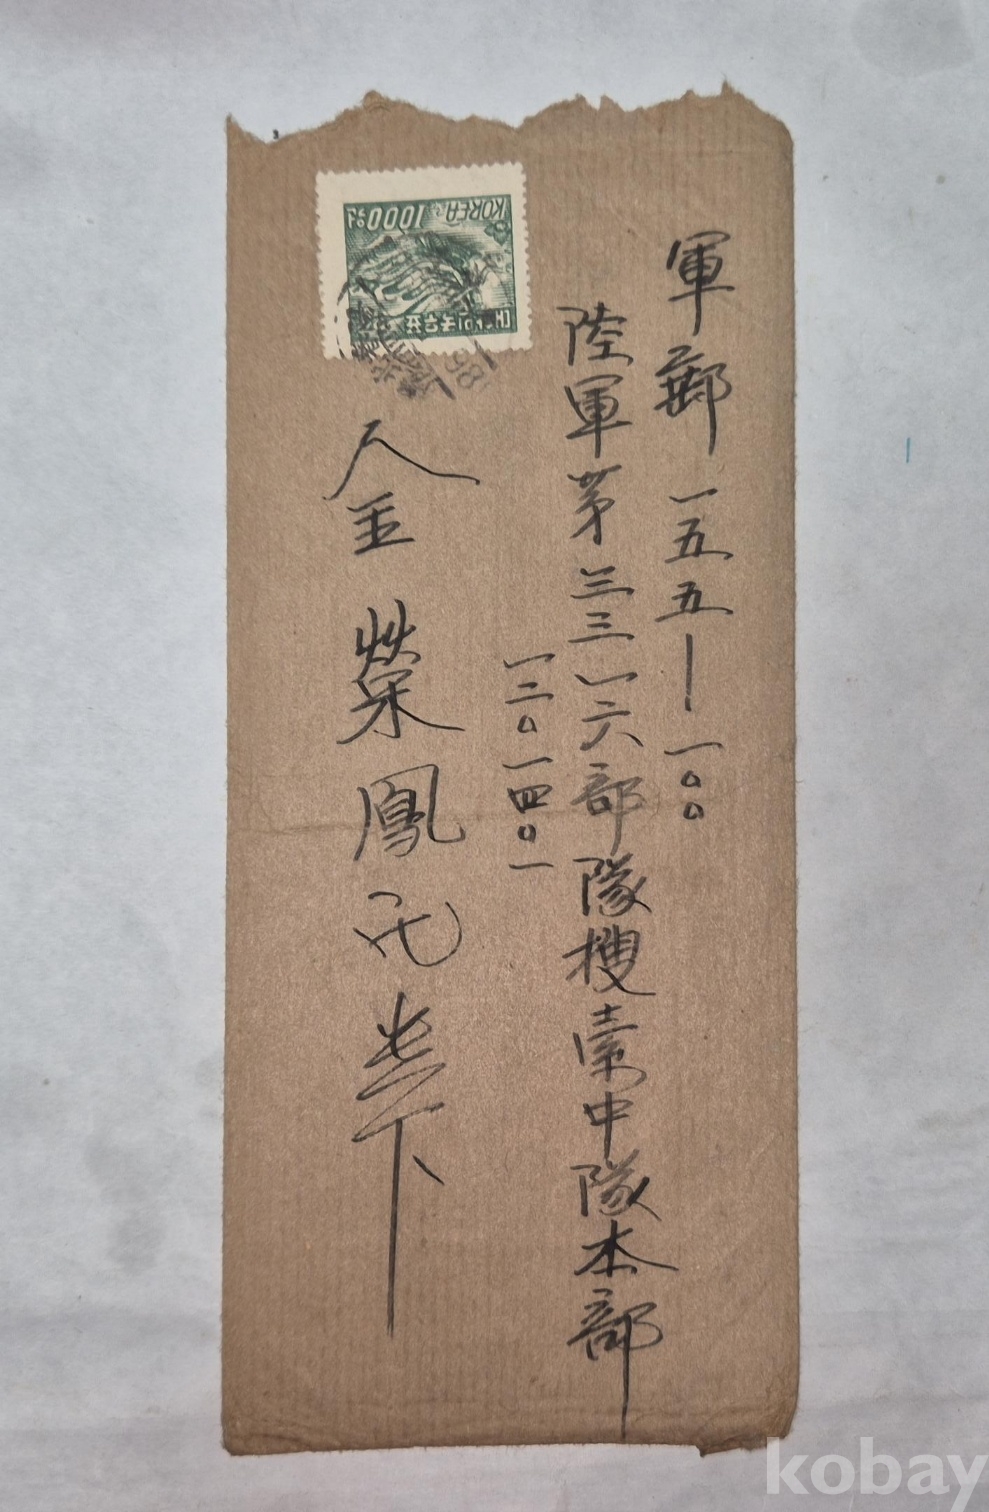 軍郵 一五五—一〇〇
陸軍第三三一六部隊搜索中隊本部
一二〇一四〇一
金榮鳳氏 座下
KOREA 1000
대한민국우표
kobay